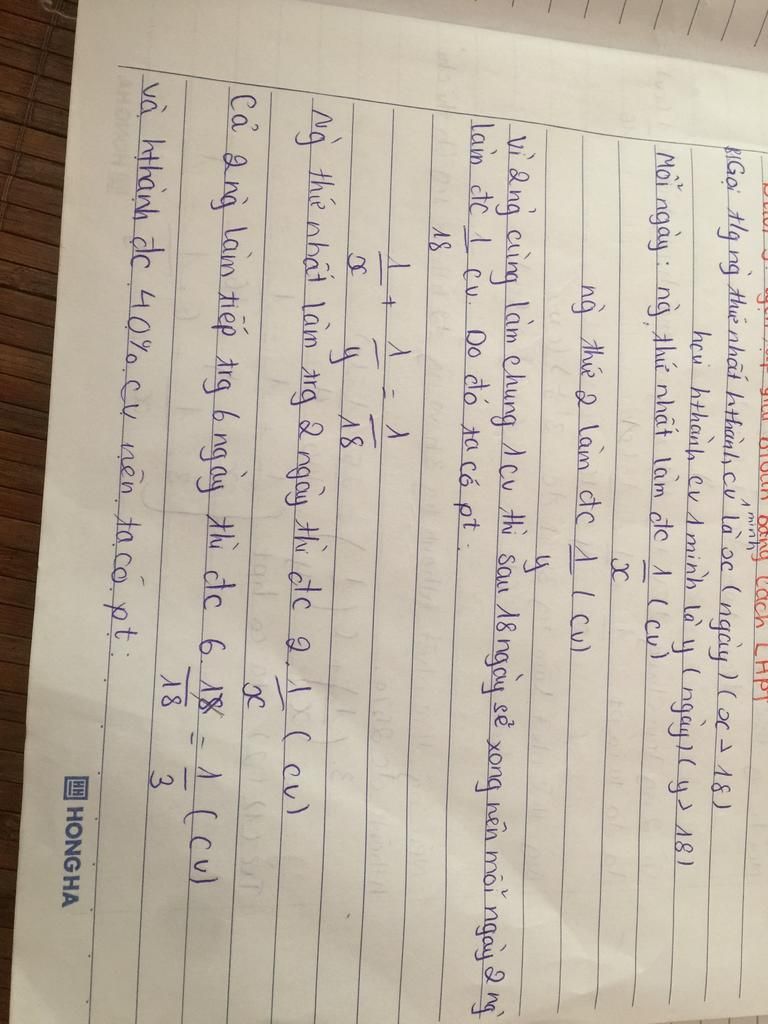 bằng cách LHPT
B1Gọi tlg ng thứ nhất hthành cv 1 minh là x (ngày) (x > 18)
hai hthành cv 1 mình là y (ngày) (y > 18)
Mỗi ngày: ng thứ nhất làm đc 1/x (cv)
ng thứ 2 làm đc 1/y (cv)
Vì 2 ng cùng làm chung 1 cv thì sau 18 ngày sẽ xong nên mỗi ngày 2 ng
làm đc 1/18 cv. Do đó ta có pt:
1/x + 1/y = 1/18
Ng thứ nhất làm trg 2 ngày thì đc 2. 1/x (cv)
Cả 2 ng làm tiếp trg 6 ngày thì đc 6. 1/18 = 1/3 (cv)
và hthành đc 40% cv nên ta có pt:
HONG HA